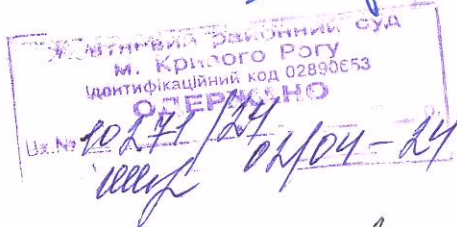 Жовтневий районний суд
м. Кривого Рогу
Ідентифікаційний код 02890653
ОДЕРЖАНО
Вх.№ 10271/24
02/04-24